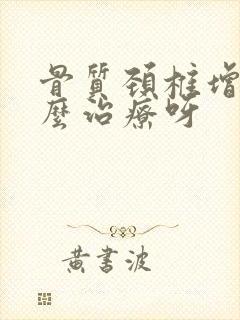 骨質頸椎增
麼治療呀
黃書波